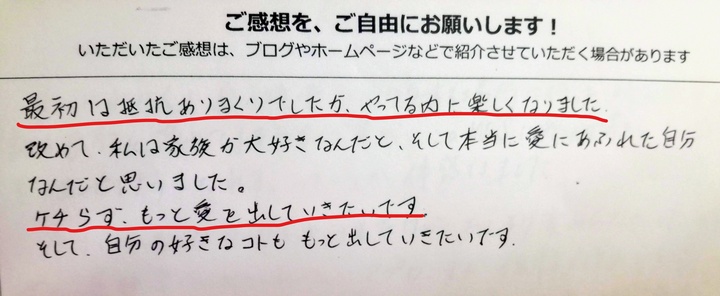 ご感想を、ご自由にお願いします！
いただいたご感想は、ブログやホームページなどで紹介させていただく場合があります
最初は抵抗ありまくりでしたが、やってる内に楽しくなりました.
改めて、私は家族が大好きなんだと、そして本当に愛にあふれた自分
なんだと思いました。
ケチらず、もっと愛を出していきたいです.
そして、自分の好きなコトも もっと出していきたいです.